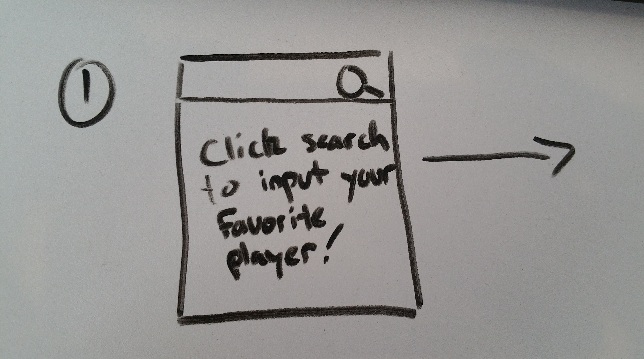 1
Click search
to input your
favorite
player!